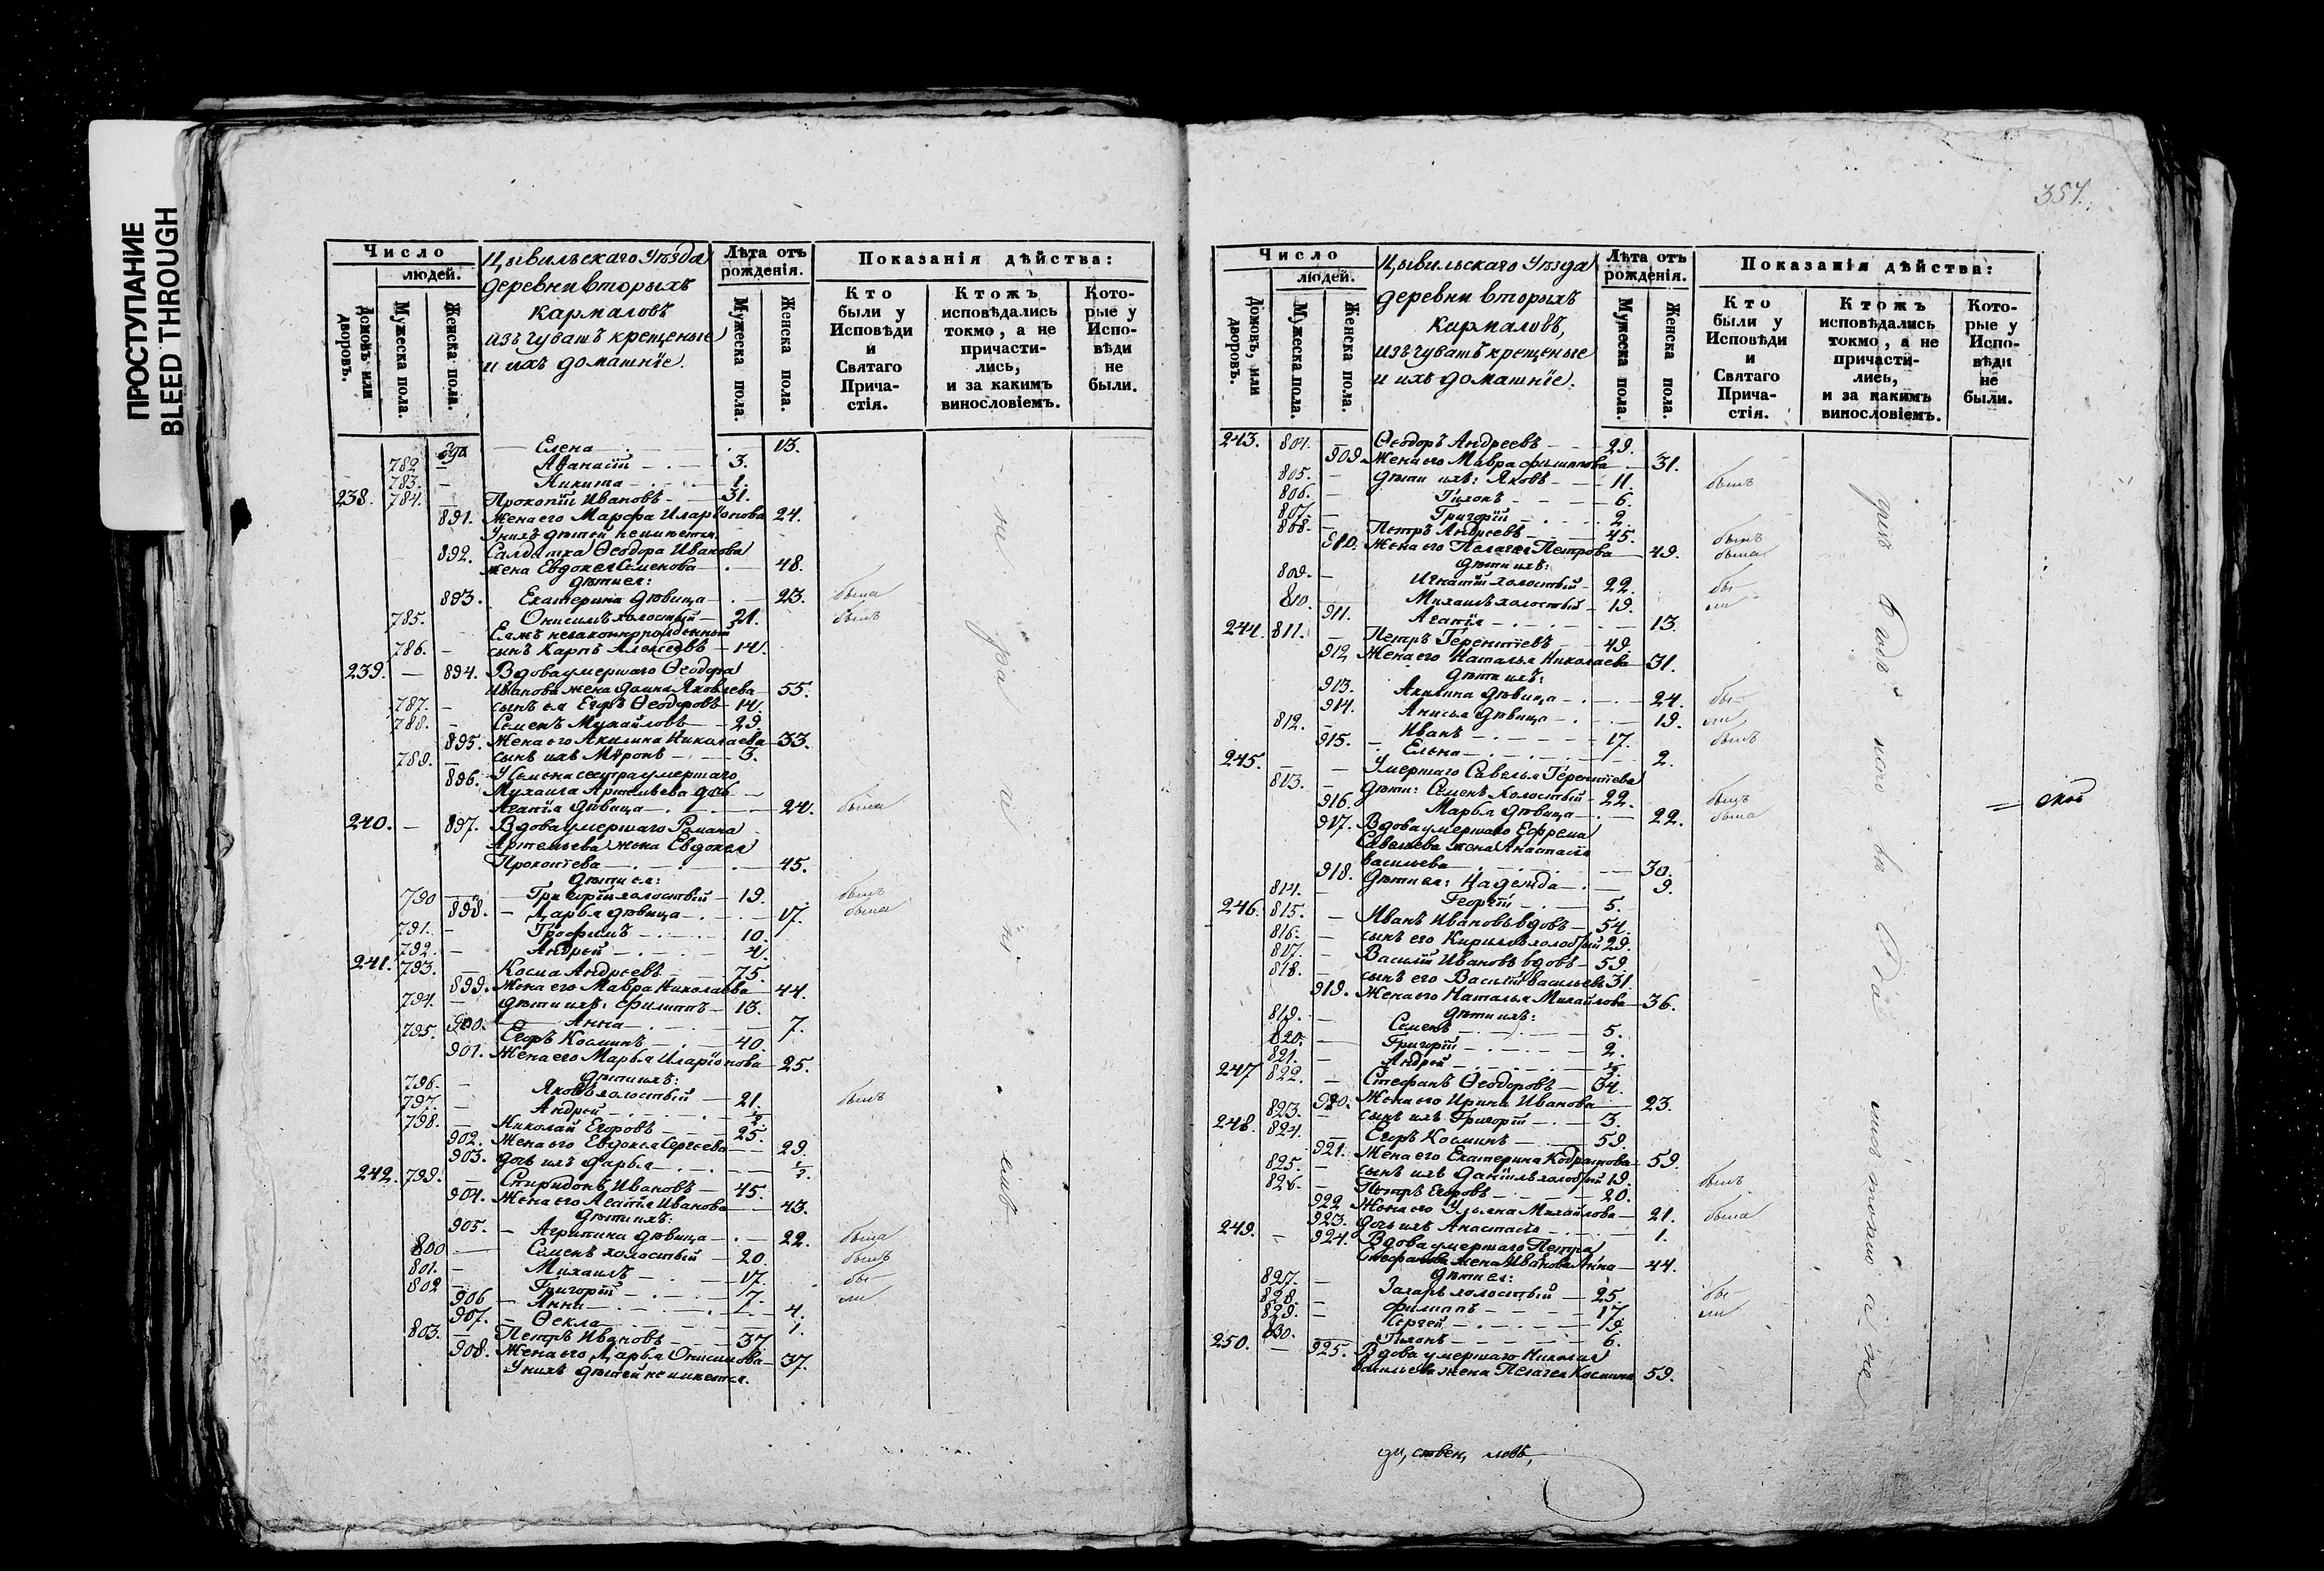 ПРОСТУПАНИЕ
BLEED THROUGH
Число
людей.
Домовъ, или дворовъ.
Мужеска пола.
Женска пола.
Цывильскаго Уѣзда
деревни вторыхъ
Кармаловъ
изъ чувашъ крещеные
и ихъ домашнїе.
Лѣта отъ рожденія.
Мужеска пола.
Женска пола.
Показанія дѣйства:
Кто были у Исповѣди и Святаго Прича-стія.
Ктожъ исповѣдались токмо, а не причасти-лись, и за какимъ винословіемъ.
Кото-рые у Испо-вѣди не были.
Елена 13.
782 Аѳанасїй 3.
783. Никита 1.
238. 784. Прокопїй Ивановъ 31.
891. Жена его Марфа Иларїонова 24.
У нихъ дѣтей не имѣется.
892. Салдатка Ѳеодора Иванова
жена Евдокея Семенова 48.
дѣти ея:
893. Екатерина дѣвица 23. была
785. Онисимъ холостый 21. былъ
Ея жъ незаконнорожденный
786. сынъ Карпъ 14.
239. — 894. Вдова умершаго Ѳеодора
Иванова жена Яковлева 55.
787. сынъ ея Егоръ Ѳеодоровъ 14.
788. Семенъ Михайловъ 29.
895. Жена его Акилина Николаева 33.
789. сынъ ихъ Мѵронъ 3.
896. У Семена сестра умершаго
Михаила Артемьева дчь
Агапїя дѣвица 24. была
240. — 897. Вдова умершаго Романа
Артемьева жена Евдокея
Прокопїева 45.
дѣти ея:
790 Григорїй холостый 19. былъ
898. Дарья дѣвица 17. была
791. Трофимъ 10.
792. Андрей 4.
241. 793. Косма Андреевъ 75.
899. Жена его Мавра Николаева 44.
794. дѣти ихъ: Филиппъ 13.
900. Анна 7.
795. Егоръ Косминъ 40.
901. Жена его Марья Иларїонова 25.
дѣти ихъ:
796. Яковъ холостый 21. былъ
797. Андрей ½
798. Николай Егоровъ 25.
902. Жена его Евдокея Сергеева 29.
903. дочь ихъ Дарья ½.
242. 799. Спиридонъ Ивановъ 45.
904. Жена его Агапїя Иванова 43.
дѣти ихъ:
905. Агрипина дѣвица 22. была
800 Семенъ холостый 20. былъ
801. Михаилъ 17. бы-
802 Григорїй 7. ли
906 Анна 4.
907. Ѳекла 1.
803. Петръ Ивановъ 37
908. Жена его Дарья Онисимова 37.
У нихъ дѣтей не имѣется.
357.
Число
людей.
Домовъ, или дворовъ.
Мужеска пола.
Женска пола.
Цывильскаго Уѣзда
деревни вторыхъ
Кармаловъ,
изъ чувашъ крещеные
и ихъ домашнїе.
Лѣта отъ рожденія.
Мужеска пола.
Женска пола.
Показанія дѣйства:
Кто были у Исповѣди и Святаго Прича-стія.
Ктожъ исповѣдались токмо, а не причасти-лись, и за какимъ винословіемъ.
Кото-рые у Испо-вѣди не были.
243. 804. Ѳеодоръ Андреевъ 29.
909. Жена его Мавра Филиппова 31.
805. дѣти ихъ: Яковъ 11. былъ
806. Гилонъ 6.
807. Григорїй 2
808. Петръ Андреевъ 45. былъ
910. Жена его Пелагея Петрова 49. была
дѣти ихъ:
809. Игнатїй холостый 22. бы-
810. Михаилъ холостый 19. ли
911. Агапїя 13.
244. 811. Петръ Терентїевъ 49.
912 Жена его Наталья Николаева 31.
дѣти ихъ:
913. Акилина дѣвица 24. бы-
914. Анисья дѣвица 19. ли
812. Иванъ 17. былъ
915. Елена 2.
245. Умершаго Савелья Терентїева
813. дѣти: Семенъ холостый 22. былъ
916. Марья дѣвица 22. была
917. Вдова умершаго Ефрема
Савельева жена Анастасїя
Васильева 30.
918. дѣти ея: Надежда 9.
814. Георгїй 5.
246. 815. Иванъ Ивановъ вдовъ 54.
816. сынъ его Кириллъ холостый 29.
817. Василїй Ивановъ вдовъ 59.
818. сынъ его Василїй Васильевъ 31.
919. Жена его Наталья Михайлова 36.
дѣти ихъ:
819. Семенъ 5.
820. Григорїй 2.
821. Андрей ½.
247 822. Стефанъ Ѳеодоровъ 34.
920. Жена его Ирина Иванова 23.
823. сынъ ихъ Григорїй 3.
248. 824. Егоръ Косминъ 59.
921. Жена его Екатерина Кодратова 59.
825. сынъ ихъ Данїилъ холостый 19. былъ
826. Петръ Егоровъ 20.
922 Жена его Ульяна Михайлова 21. была
923. дочь ихъ Анастасїя 1.
249. — 924. Вдова умершаго Петра
Стефанова жена Иванова Анна 44.
дѣти ея:
827. Захаръ холостый 25. бы-
828. Филиппъ 17 ли
829. Сергей 19.
830. Гилонъ 6.
250. — 925. Вдова умершаго Николая
Васильева жена Пелагея Космина 59.
ди, ствен, ловъ,